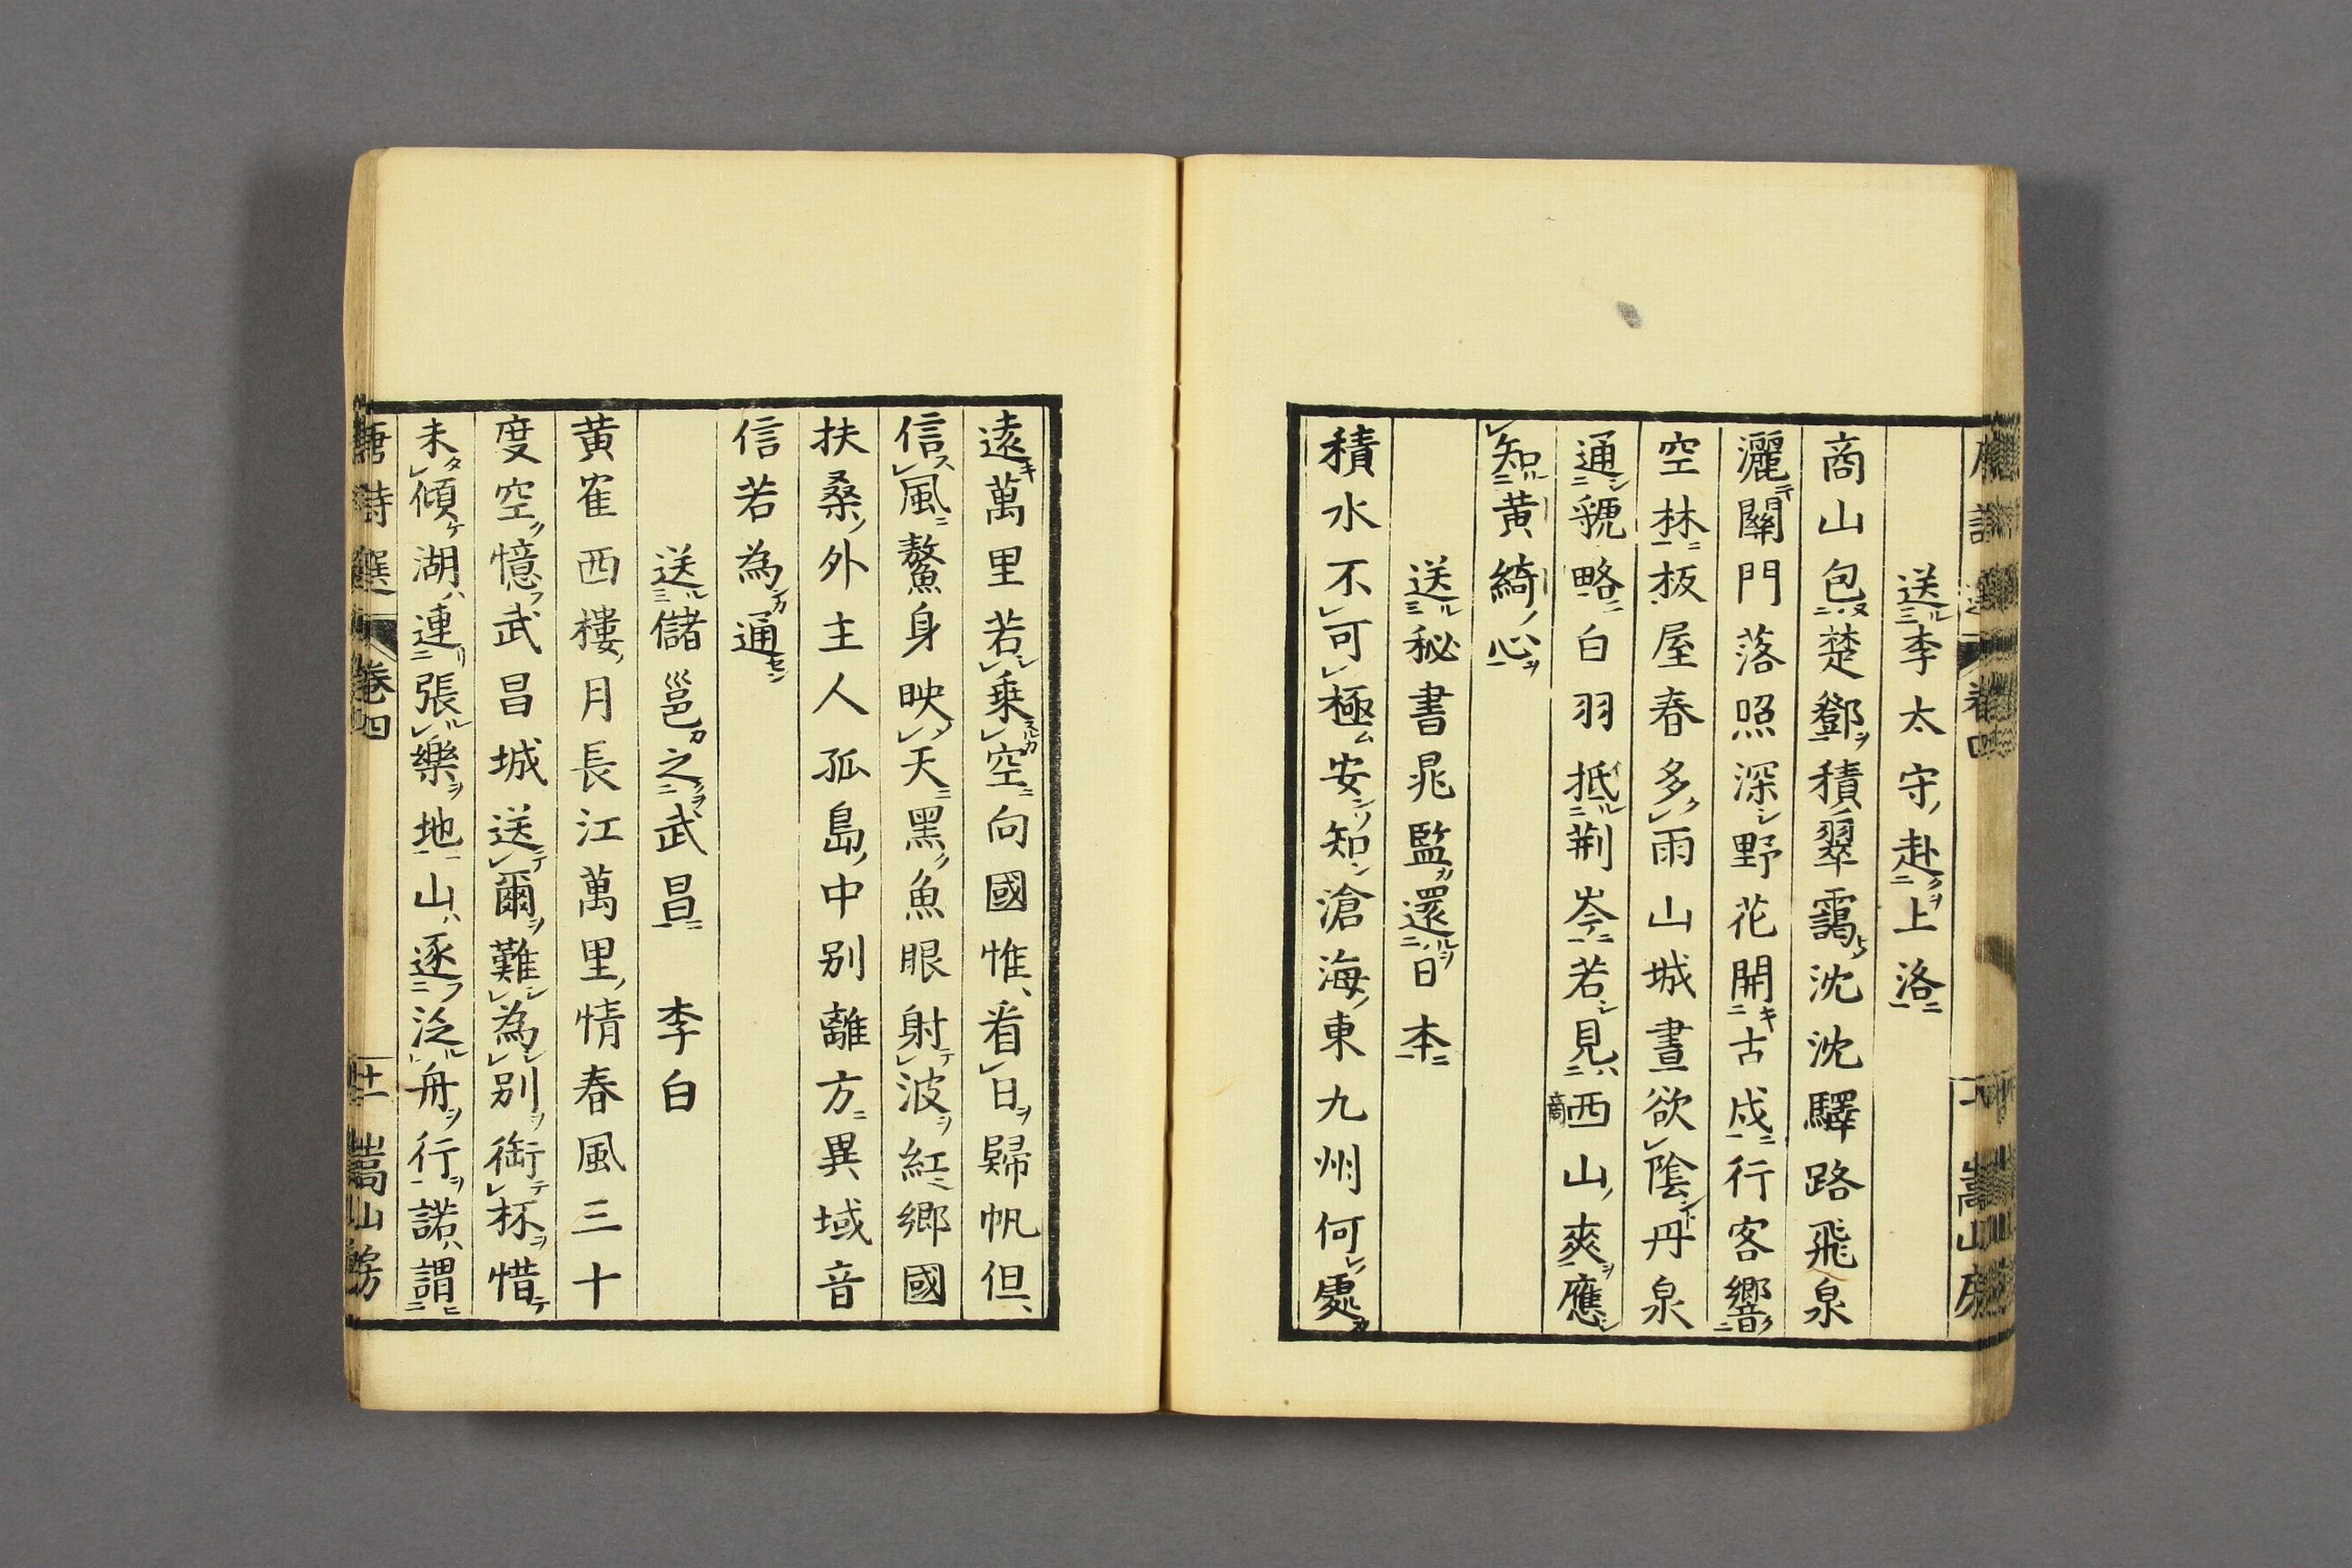 送李太守赴上洛
商山包楚鄧積翠靄沈沈驛路飛泉
灑關門落照深野花開古戍行客響
空林板屋春多雨山城晝欲陰丹泉
通虢略白羽抵荆岑若見西山爽應
商
知黄綺心
送秘書晁監還日本
積水不可極安知滄海東九州何處
遠萬里若乗空向國惟看日歸帆但
信風鰲身映天黑魚眼射波紅鄉國
扶桑外主人孤島中别離方異域音
信若為通
送儲邕之武昌　李白
黄隺西樓月長江萬里情春風三十
度空憶武昌城送爾難為别銜杯惜
未傾湖連張樂地山逐泛舟行諾謂
唐詩選　卷四　十一　嵩山房